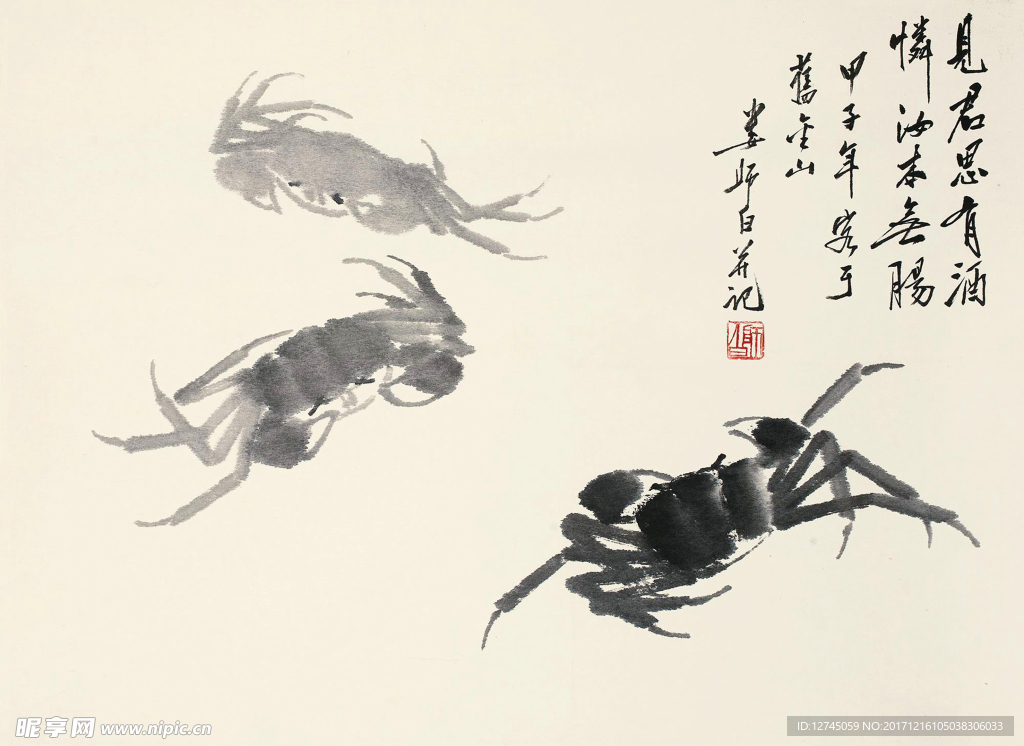 見君思有酒
憐汝本無腸
甲子年客于
舊金山
娄師白并记
昵享网 www.nipic.cn
ID:12745059 NO:20171216105038306033